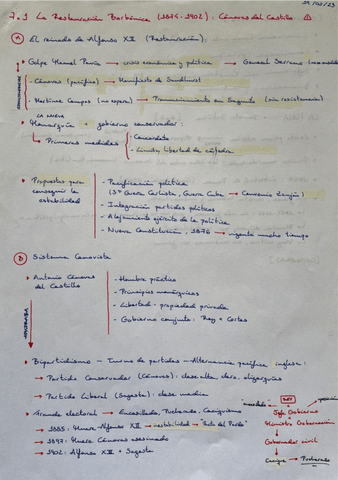 7.1 La Restauración Borbónica (1874-1902): Cánovas del Castillo
A El reinado de Alfonso XII (Restauración):
Golpe Manuel Pavía → crisis económica y política → General Serrano
- Cánovas (pacífica) → Manifiesto de Sandhurst
- Martínez Campos (no espera) → Pronunciamiento en Sagunto (sin resistencia)
Monarquía + gobierno conservador:
→ Primeras medidas
- Concordato
- Límites libertad de cátedra
Propuestas para conseguir la estabilidad
- Pacificación política
(3ª Guerra Carlista, Guerra Cuba → Convenio Zanjón)
- Integración partidos políticos
- Alejamiento ejército de la política
- Nueva Constitución, 1876 → vigente mucho tiempo
B Sistema Canovista
Antonio Cánovas del Castillo
- Hombre práctico
- Principios monárquicos
- Libertad - propiedad privada
- Gobierno conjunto: Rey + Cortes
Bipartidismo - Turno de partidos - Alternancia pacífica inglesa:
→ Partido Conservador (Cánovas): clase alta, clero, oligarquías
→ Partido Liberal (Sagasta): clase media
Fraude electoral → Encasillado, Pucherazo, Caciquismo
→ 1885: Muere Alfonso XII → estabilidad → "Pacto del Pardo"
→ 1897: Muere Cánovas asesinado
→ 1902: Alfonso XIII + Sagasta
REY
Jefe Gobierno
Ministro Gobernación
Gobernador civil
Cacique → Pucherazo